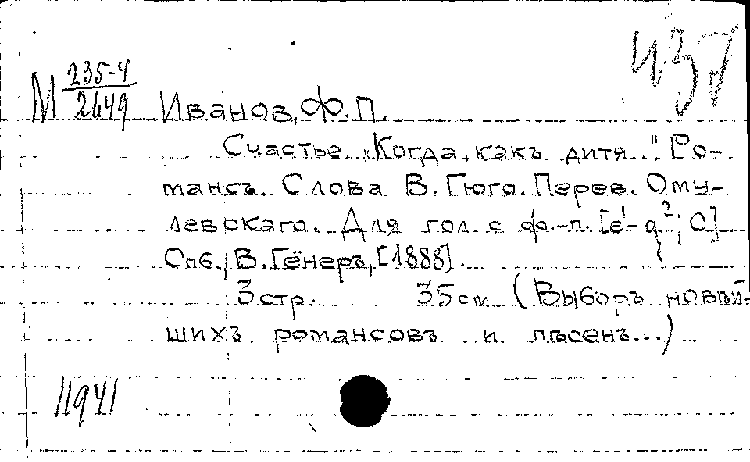 М 235-4/2649
Иванов, Ф.П.
Счастье. „Когда, какъ дитя..." Ро-
мансъ. Слова В. Гюго. Перев. Ому-
левскаго. Для гол. с ф.-п. [e¹-g²; C]
Спб., В. Гёнеръ, [1888].
3 стр. 35 см (Выборъ новѣй-
шихъ романсовъ и пѣсенъ...)
11941